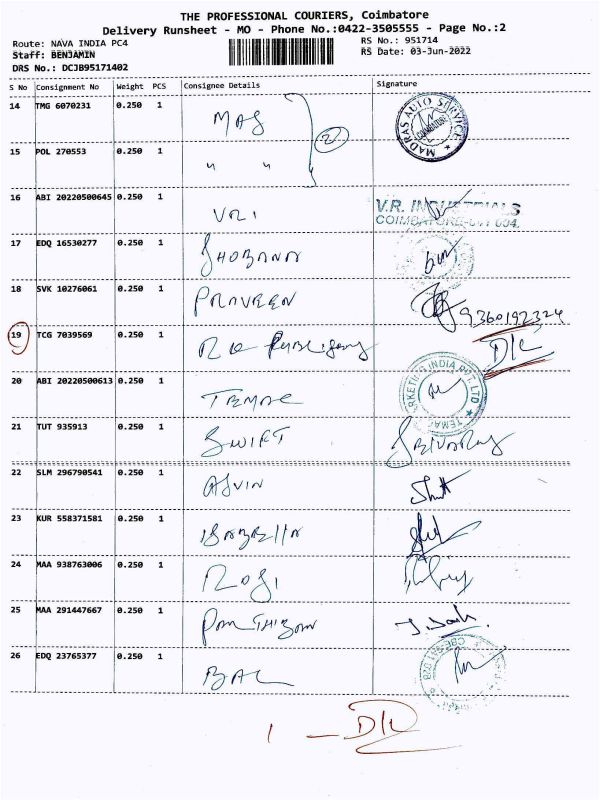 THE PROFESSIONAL COURIERS, Coimbatore
Delivery Runsheet - MO - Phone No.:0422-3505555 - Page No.:2
Route: NAVA INDIA PC4
RS No.: 951714
Staff: BENJAMIN
RS Date: 03-Jun-2022
DRS No.: DCJB95171402
S No Consignment No Weight PCS Consignee Details Signature
14 TMG 6070231 0.250 1 MAS 2 MADRAS AUTO SERVICE COIMBATORE
15 POL 270553 0.250 1 " "
16 ABI 20220500645 0.250 1 VRI V.R. INDUSTRIALS
COIMBATORE-641 004.
17 EDQ 16530277 0.250 1 SHOBANA
18 SVK 10276061 0.250 1 PRAVEEN 9360192324
19 TCG 7039569 0.250 1 D/L
20 ABI 20220500613 0.250 1 TEMAC TEMAC MARKETING INDIA PVT. LTD
21 TUT 935913 0.250 1 SWIFT
22 SLM 296790541 0.250 1 ASVIN
23 KUR 558371581 0.250 1 ISABELLA
24 MAA 938763006 0.250 1 ROSI
25 MAA 291447667 0.250 1
26 EDQ 23765377 0.250 1 BAL
1 - D/L